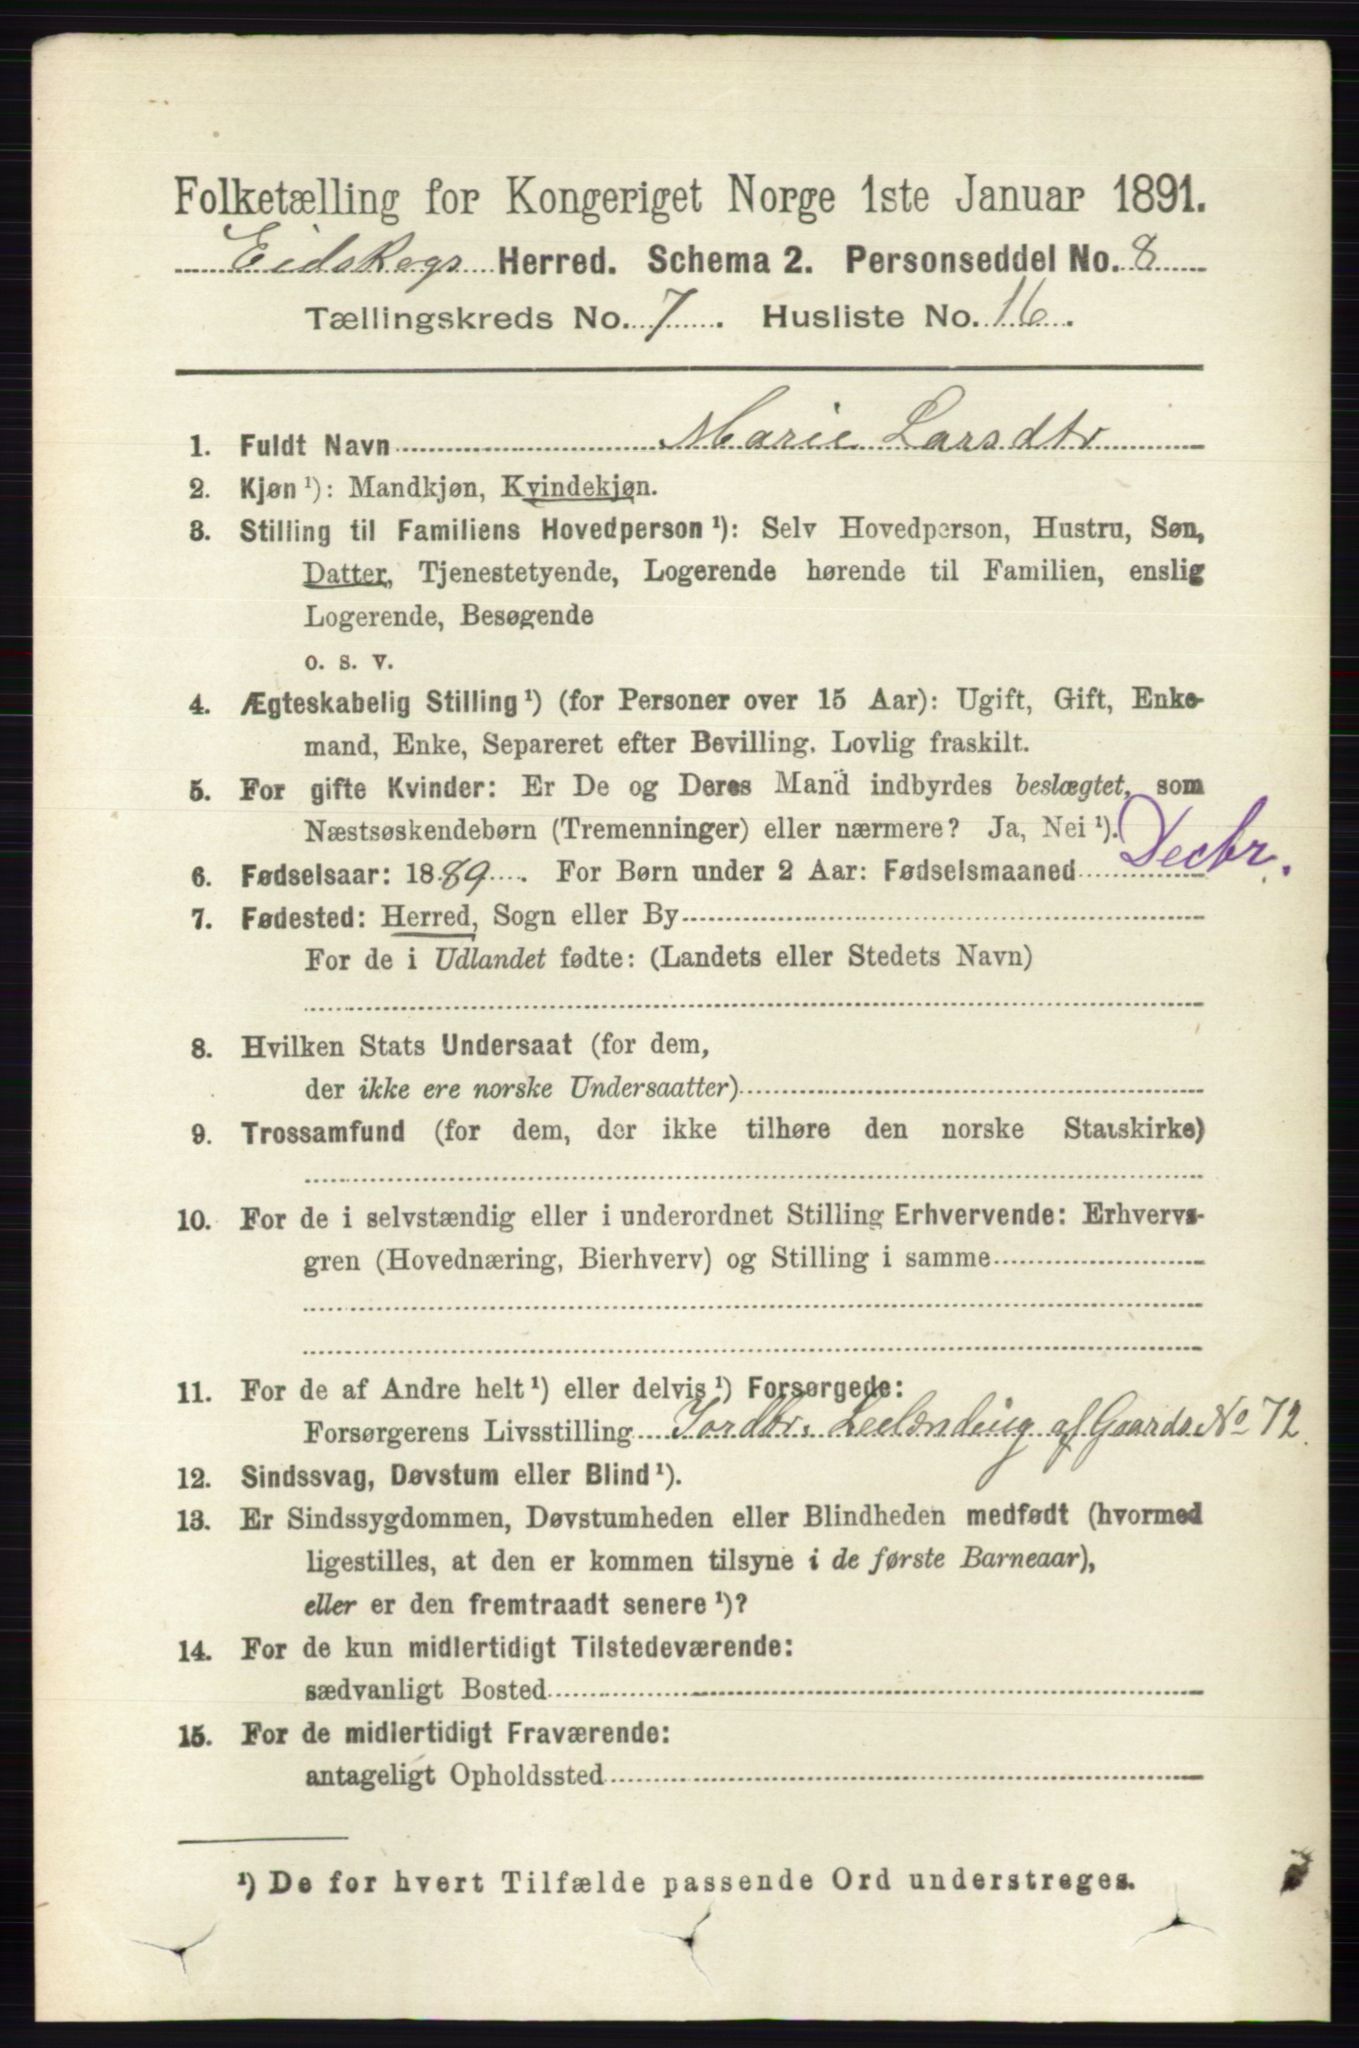 Folketælling for Kongeriget Norge 1ste Januar 1891.
Eidskogs Herred. Schema 2. Personseddel No. 8
Tællingskreds No. 7. Husliste No. 16.
1. Fuldt Navn Marie Larsdtr
2. Kjøn ¹): Mandkjøn, Kvindekjøn.
3. Stilling til Familiens Hovedperson ¹): Selv Hovedperson, Hustru, Søn,
Datter, Tjenestetyende, Logerende hørende til Familien, enslig
Logerende, Besøgende
o. s. v.
4. Ægteskabelig Stilling ¹) (for Personer over 15 Aar): Ugift, Gift, Enke-
mand, Enke, Separeret efter Bevilling. Lovlig fraskilt.
5. For gifte Kvinder: Er De og Deres Mand indbyrdes beslægtet, som
Næstsøskendebørn (Tremenninger) eller nærmere? Ja, Nei ¹).
6. Fødselsaar: 1889. For Børn under 2 Aar: Fødselsmaaned Decbr.
7. Fødested: Herred, Sogn eller By
For de i Udlandet fødte: (Landets eller Stedets Navn)
8. Hvilken Stats Undersaat (for dem,
der ikke ere norske Undersaatter)
9. Trossamfund (for dem, der ikke tilhøre den norske Statskirke)
10. For de i selvstændig eller i underordnet Stilling Erhvervende: Erhvervs-
gren (Hovednæring, Bierhverv) og Stilling i samme
11. For de af Andre helt ¹) eller delvis ¹) Forsørgede:
Forsørgerens Livsstilling Jordbr. Leilænding af Gaards No 72
12. Sindssvag, Døvstum eller Blind ¹).
13. Er Sindssygdommen, Døvstumheden eller Blindheden medfødt (hvormed
ligestilles, at den er kommen tilsyne i de første Barneaar),
eller er den fremtraadt senere ¹)?
14. For de kun midlertidigt Tilstedeværende:
sædvanligt Bosted
15. For de midlertidigt Fraværende:
antageligt Opholdssted
¹) De for hvert Tilfælde passende Ord understreges.